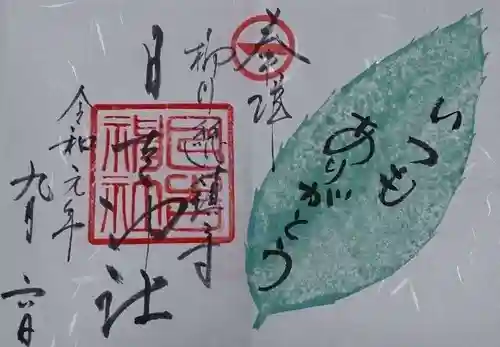 奉拝
柳川総鎮守
日吉神社
日吉
神社
令和元年
九月
六日
いつも
ありがとう